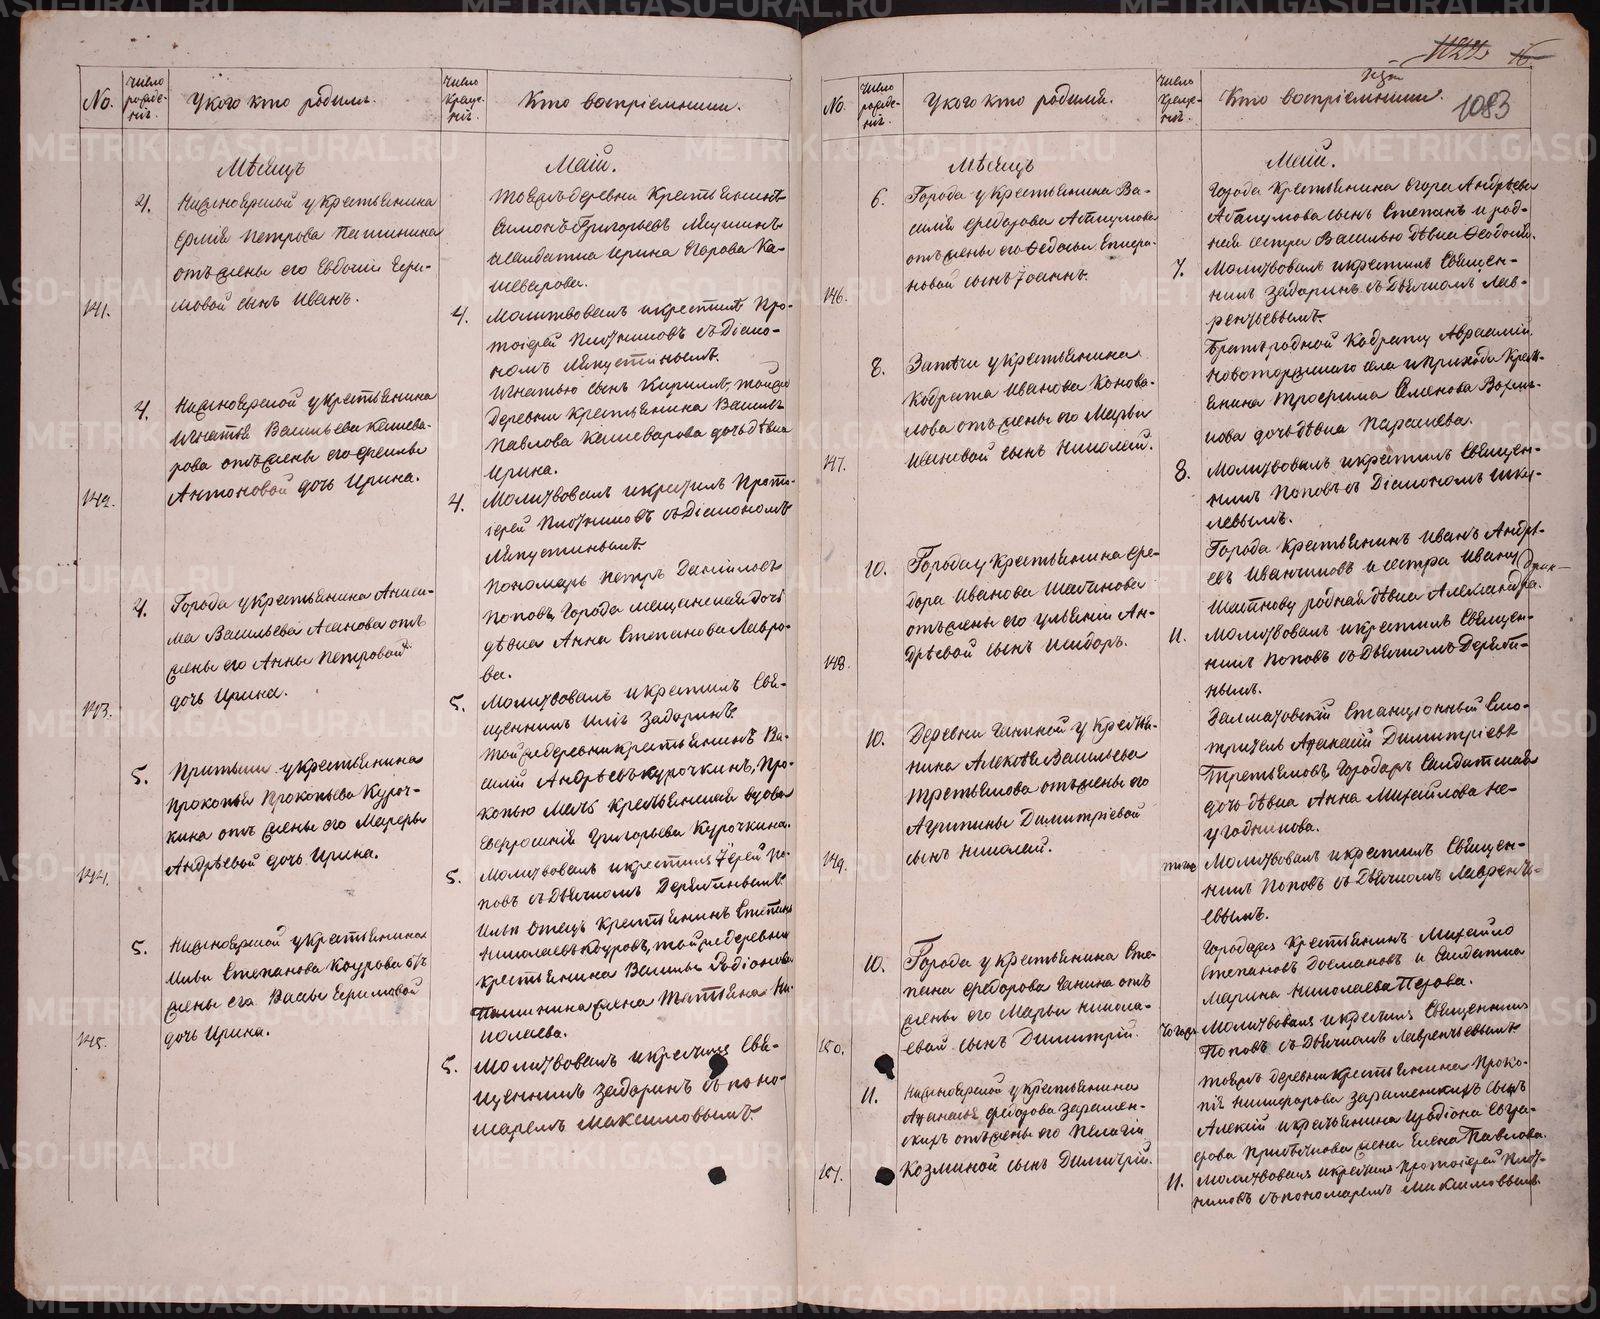 No.
Число рожде-нія.
У кого кто родился.
Число креще-нія.
Кто воспріемники.
Мѣсяцъ
Маій.
141.
4.
Нижноярской у крестьянина
Ермія Петрова Пашнина
отъ жены его Евдокіи Ефи-
мовой сынъ Иванъ.
Тояжъ деревни Крестьянинъ
Симонъ Григорьевъ
и Солдатка Ирина Егорова Ка-
шеварова.
4.
Молитвовалъ и крестилъ Про-
тоіерей Плотниковъ съ Діако-
номъ Ляпустинымъ.
142.
4.
Нижноярской у крестьянина
Игнатія Васильева Кашева-
рова отъ жены его
Антоновой дочь Ирина.
Игнатью сынъ Кириллъ, тойже
деревни Крестьянина Василья
Павлова Кашеварова дочь дѣвка
Ирина.
4.
Молитвовалъ и крестилъ Прото-
іерей Плотниковъ съ Діакономъ
Ляпустинымъ.
143.
4.
Города у крестьянина Аниси-
ма Васильева Асанова отъ
жены его Анны Петровой
дочь Ирина.
Пономарь Петръ Даніиловъ
Поповъ, Города мещанская дочь
дѣвка Анна Степанова Лавро-
ва.
5.
Молитвовалъ и крестилъ Свя-
щенникъ Илія Задоринъ.
144.
5.
Притыки у крестьянина
Прокопья Прокопьева Куроч-
кина отъ жены его Марѳы
Андрѣевой дочь Ирина.
Той же деревни крестьянинъ Ва-
силій Андрѣевъ Курочкинъ, Про-
копью мать крестьянская вдова
Евфросинія Григорьева Курочкина.
5.
Молитвовалъ и крестилъ Іерей По-
повъ съ Дьячкомъ Дерябинымъ.
145.
5.
Нижноярской у крестьянина
Ильи Степанова Коурова отъ
жены его Вассы Ефимовой
дочь Ирина.
Ильи отецъ Крестьянинъ Степанъ
Николаевъ Коуровъ, той же деревни
крестьянина Василья Родіонова
Пашнина жена Татьяна Ни-
колаева.
5.
Молитвовалъ и крестилъ Свя-
щенникъ Задоринъ съ поно-
маремъ Максимовымъ.
1083
No.
Число рожде-нія.
У кого кто родился.
Число креще-нія.
Кто воспріемники.
Мѣсяцъ
Маій.
146.
6.
Города у Крестьянина Ва-
силія Федорова Абакумова
отъ жены его Федосьи Епифа-
новой сынъ Іоаннъ.
Города Крестьянина Егора Андрѣева
Абакумова сынъ Степанъ и род-
ная сестра Василью дѣвка Ѳеодосія.
7.
Молитвовалъ и крестилъ Священ-
никъ Задоринъ съ Дьячкомъ Лав-
рентьевымъ.
147.
8.
Затечи у крестьянина
Кодрата Иванова Конова-
лова отъ жены его Марьи
Ивановой сынъ Николай.
Братъ родной Кодрату Авраамій.
Новоторжского села и прихода Крестья-
янина Трофима Семенова
дочь дѣвка Парасковья.
8.
Молитвовалъ и крестилъ Священ-
никъ Поповъ съ Діакономъ Ика-
левымъ.
148.
10.
Города у Крестьянина Фе-
дора Иванова Шатонова
отъ жены его Ульяніи Ан-
дрѣевой сынъ Исидоръ.
Города Крестьянинъ Иванъ Андрѣ-
евъ Иванчиковъ и сестра Ивану
родная дѣвка Александра.
11.
Молитвовалъ и крестилъ Священ-
никъ Поповъ съ Дьячкомъ Деряби-
нымъ.
149.
10.
Деревни Ганиной у Крестья-
нина Алексѣя Васильева
Третьякова отъ жены его
Агрипины Димитріевой
сынъ Николай.
Далматовскій Станціонный Смо-
тритель Аѳанасій Димитріевъ
Третьяковъ, Города Солдатская
дочь дѣвка Анна Михайлова Не-
угодникова.
тоже
Молитвовалъ и крестилъ Священ-
никъ Поповъ съ Дьячкомъ Лавренть-
евымъ.
150.
10.
Города у крестьянина Сте-
пана Федорова Ганина отъ
жены его Марьи Никола-
евой сынъ Димитрій.
Города Крестьянинъ Михайло
Степановъ Досмановъ и Солдатка
Марина Николаева Перова.
Молитвовалъ и крестилъ Священникъ
Поповъ съ Дьячкомъ Лаврентьевымъ.
151.
11.
Нижноярской у крестьянина
Аѳанасья Федорова Зарамен-
скихъ отъ жены его Пелагіи
Козминой сынъ Димитрій.
Тояжъ деревни крестьянина Проко-
пія Никифорова Зараменскихъ сынъ
Алексій и крестьянина Иродіона Евгра-
фова жена Елена Павлова.
11.
Молитвовалъ и крестилъ Протоіерей Плот-
никовъ съ пономаремъ Максимовымъ.